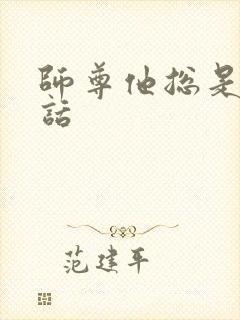 師尊他總是
話
范建平